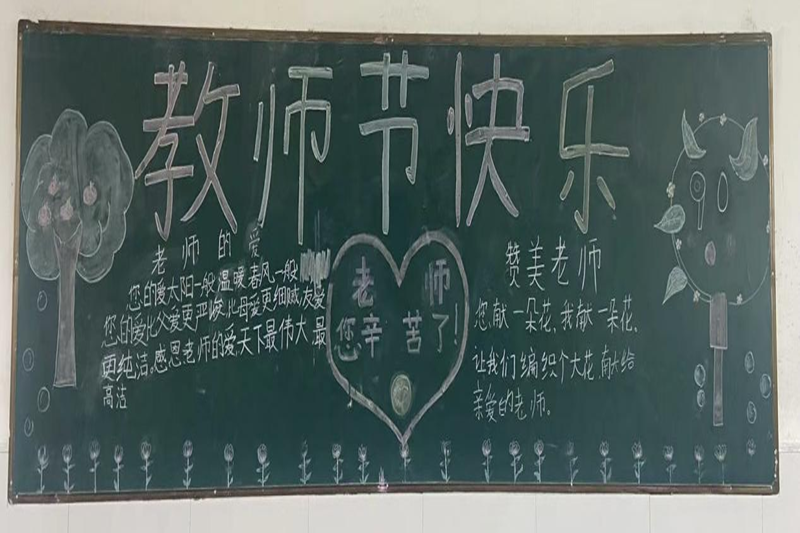 教师节快乐
老师的爱
您的爱太阳一般温暖春风一般
您的爱比父爱更严峻,比母爱更细腻友爱
更纯洁。感恩老师的爱天下最伟大最
高洁
老师
您辛苦了!
赞美老师
您献一朵花,我献一朵花,
让我们编织个大花,献给
亲爱的老师。